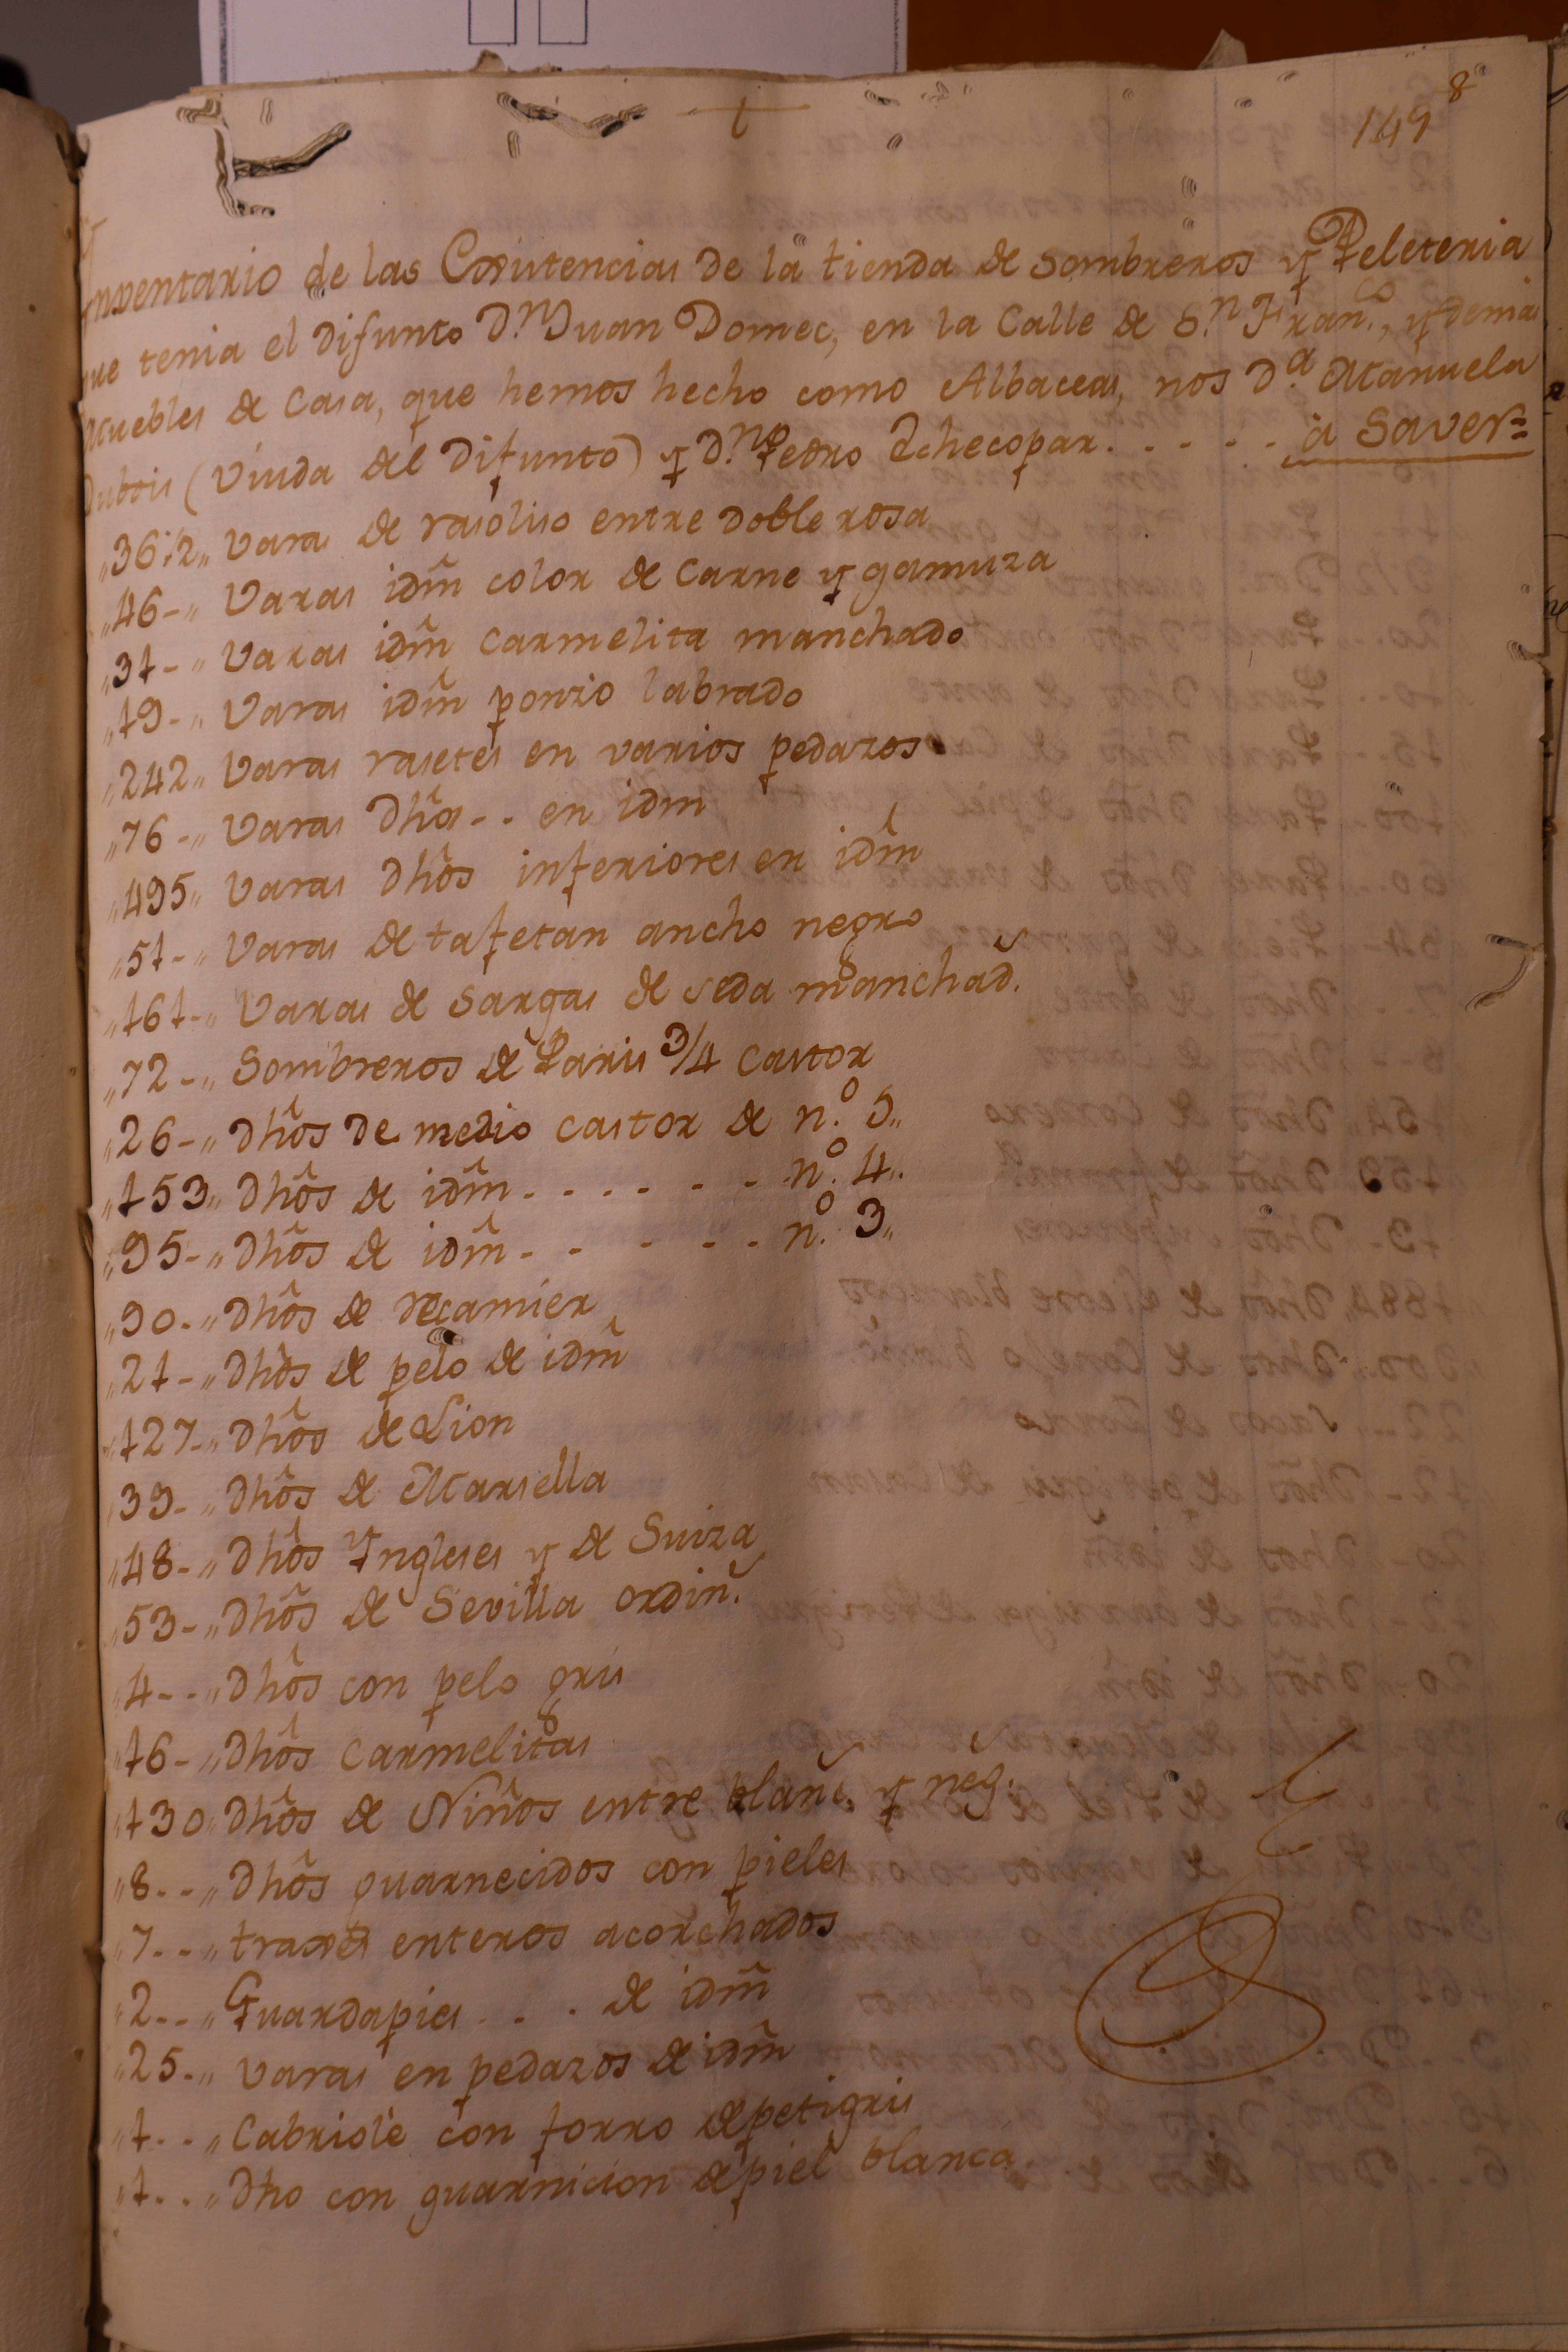 †
149 8
Ynventario de las Existencias de la tienda de Sombreros y Peleteria
que tenia el difunto D.n Juan Domec, en la Calle de S.n Fran.co, y demas
Muebles de Casa, que hemos hecho como Albaceas, nos D.a Manuela
Dubois (Viuda del Difunto) y D.n Pedro Echecopar. . . . . . à Saver=
„36½„ Varas de rasoliso entre doble rosa
„46-„ Varas idm̃ color de Carne y gamuza
„31-„ Varas idm̃ Carmelita manchado
„19-„ Varas idm̃ ponzo labrado
„242„ Varas rasetes en varios pedazos
„76-„ Varas dhas - - en idm
„495„ Varas dhos inferiores en idm̃
„51-„ Varas de tafetan ancho negro
„161-„ Varas de Sargas de seda manchad.
„72-„ Sombreros de Paris 3/4 Castor
„26-„ dhos de medio castor de n.o 5„
„153„ dhos de idm̃ - - - - - - - n.o 4„
„95-„ dhos de idm̃ - - - - - - n.o 3„
„90-„ dhos de recamier
„21-„ dhos de pelo de idm̃
„127-„ dhos de Lion
„39-„ dhos de Marsella
„48-„ dhos Yngleses y de Suiza
„53-„ dhos de Sevilla ordin.
„4--„ dhos con pelo gris
„16-„ dhos Carmelitas
„130„ dhos de Niños entre blanc. y neg.
„8--„ dhos guarnecidos con pieles
„7--„ traxes enteros acorchados
„2--„ Guardapies . . . de idm̃
„25-„ Varas en pedazos de idm̃
„1--„ Cabriolè con forro de petigris
„1--„ dho con guarnicion de piel blanca